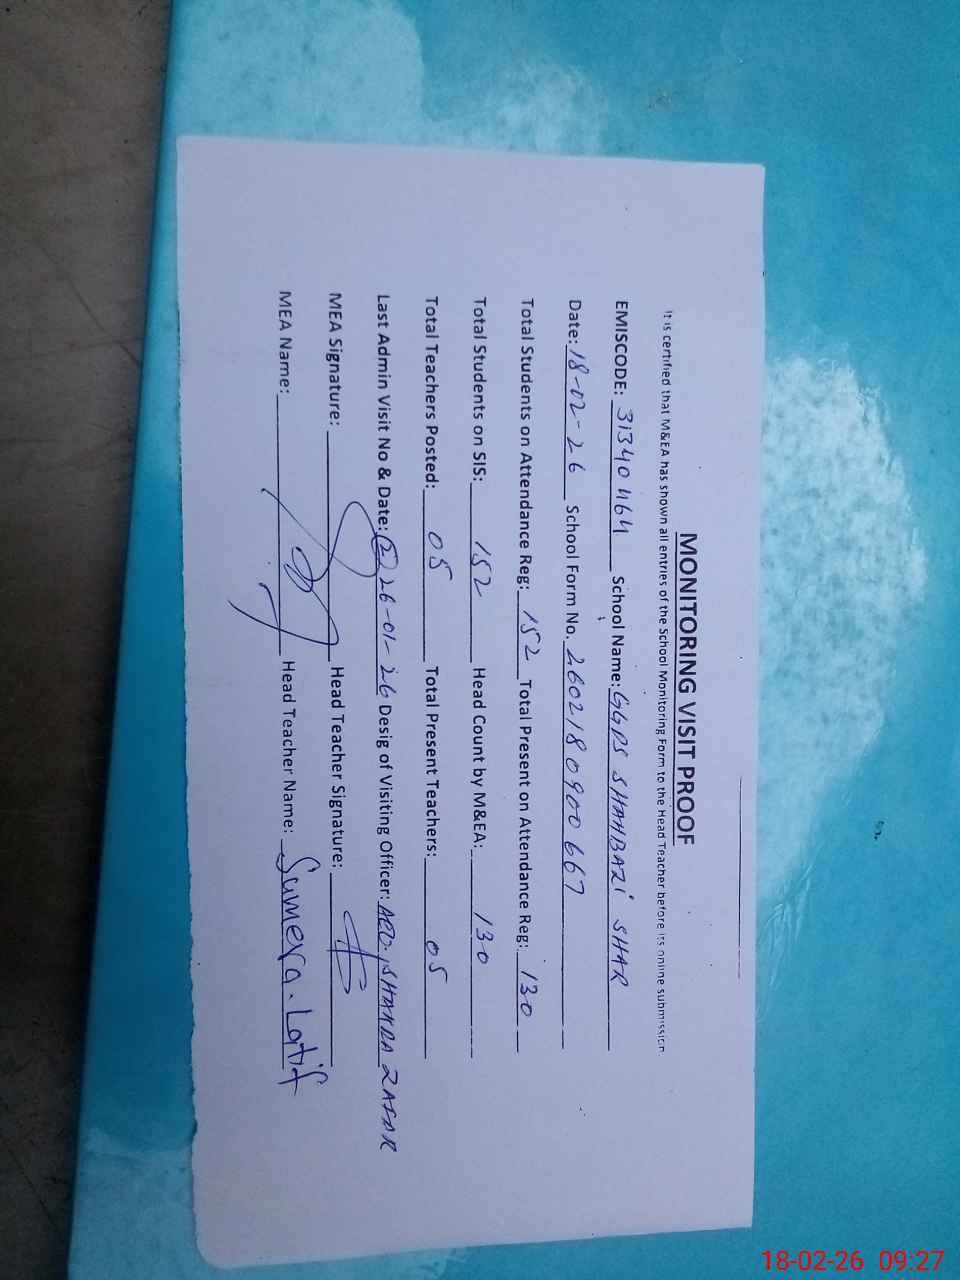 MONITORING VISIT PROOF
It is certified that M&EA has shown all entries of the School Monitoring Form to the Head Teacher before its online submission
EMISCODE: 31340464 School Name: GGPS SHAHBAZI SHAR
Date: 18-02-26 School Form No. 2602180900667
Total Students on Attendance Reg: 152 Total Present on Attendance Reg: 130
Total Students on SIS: 152 Head Count by M&EA: 130
Total Teachers Posted: 05 Total Present Teachers: 05
Last Admin Visit No & Date: (2) 26-01-26 Desig of Visiting Officer: AEO. ZAFAR
MEA Signature: Head Teacher Signature:
MEA Name: Head Teacher Name: Sumera. Latif
18-02-26 09:27